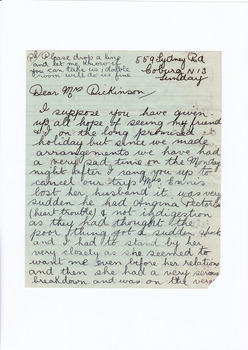 P/S Please drop a line
and let me know if
you can take us, double
room will do us fine
559 Sydney Rd
Coburg N13
Sunday
Dear Mrs Dickinson
I suppose you have given
up all hope of seeing my friend
& I on the long promised
holiday but since we made
arrangements we have had
a very sad time on the Monday
night after I rang you up to
cancel our trip Mrs Ennis
lost her husband it was very
sudden he had Angina Pectoris
(heart trouble) & not indigestion
as they had thought the
poor thing got a sudden shock
and I had to stand by her
very closely as she seemed to
want me even before her relations
and then she had a very serious
breakdown and was on the very